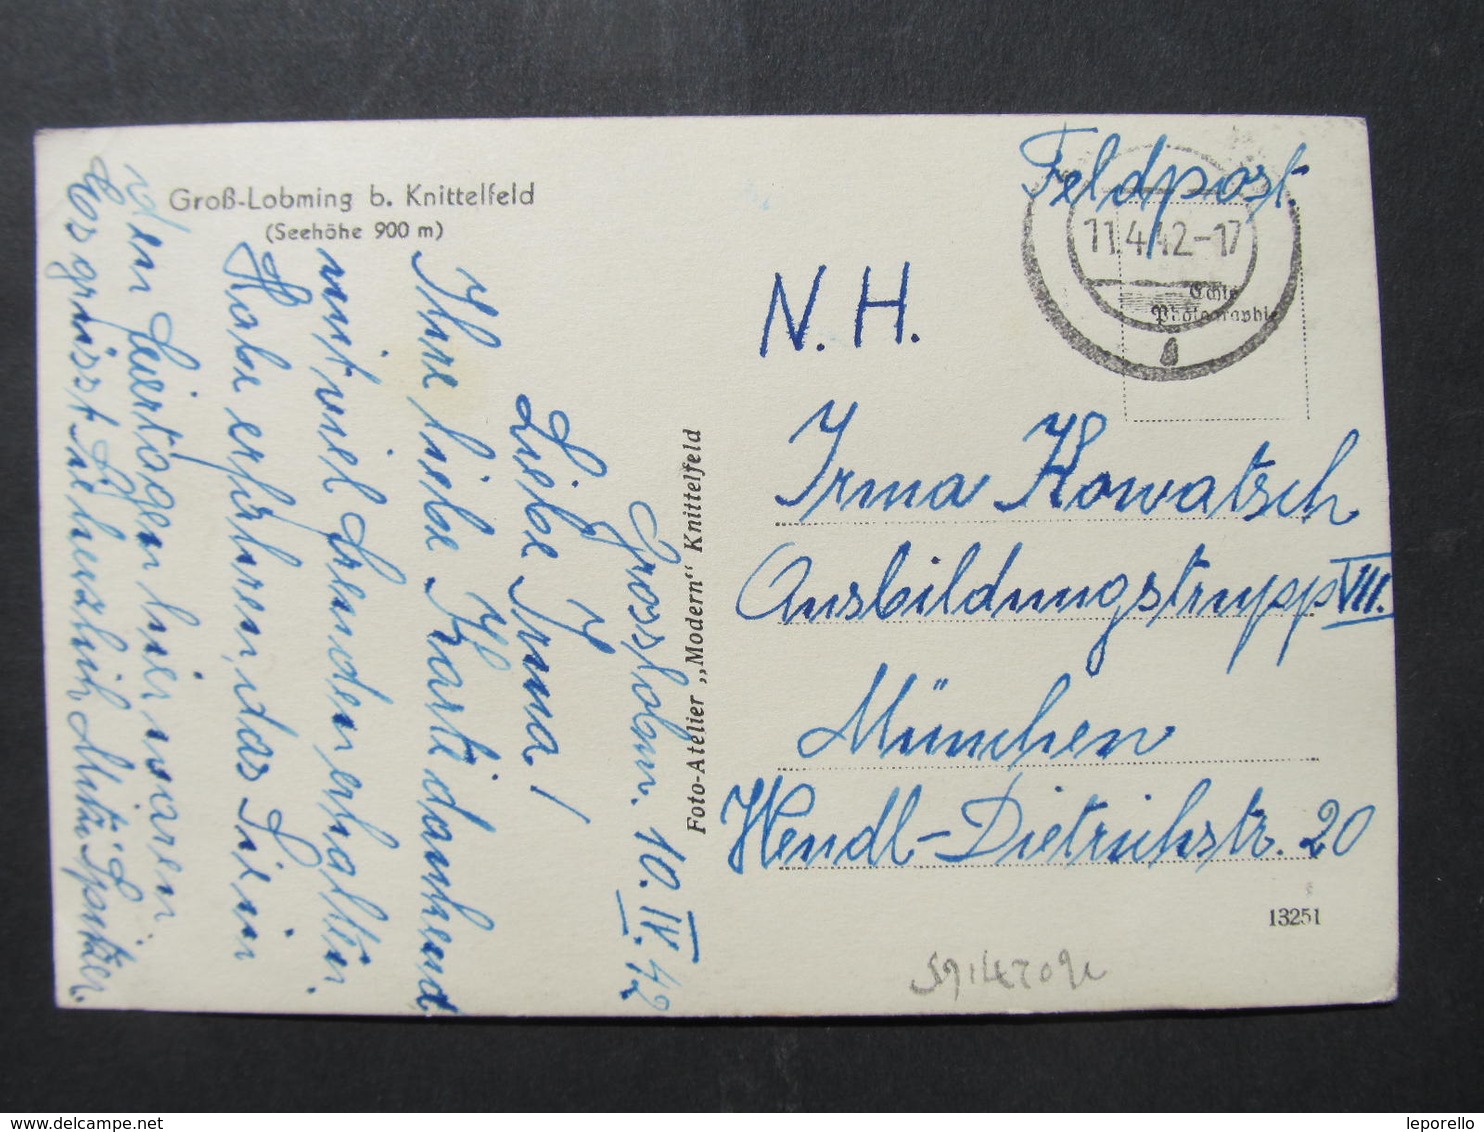 Groß-Lobming b. Knittelfeld
(Seehöhe 900 m)
Grosslobm. 10. IV. 42
Liebe Irma!
Ihre liebe Karte dankend
mit viel Freuden erhalten.
Habe erfahren, das Sie in
den Feiertagen hier waren
Es grüsst Sie herzlich
Foto-Atelier „Modern“ Knittelfeld
Feldpost
11.4.42-17
Echte
Photographie
N. H.
Irma Kowatsch
Ausbildungstrupp VIII.
München
Hendl-Dietrichstr. 20
13251
leporello